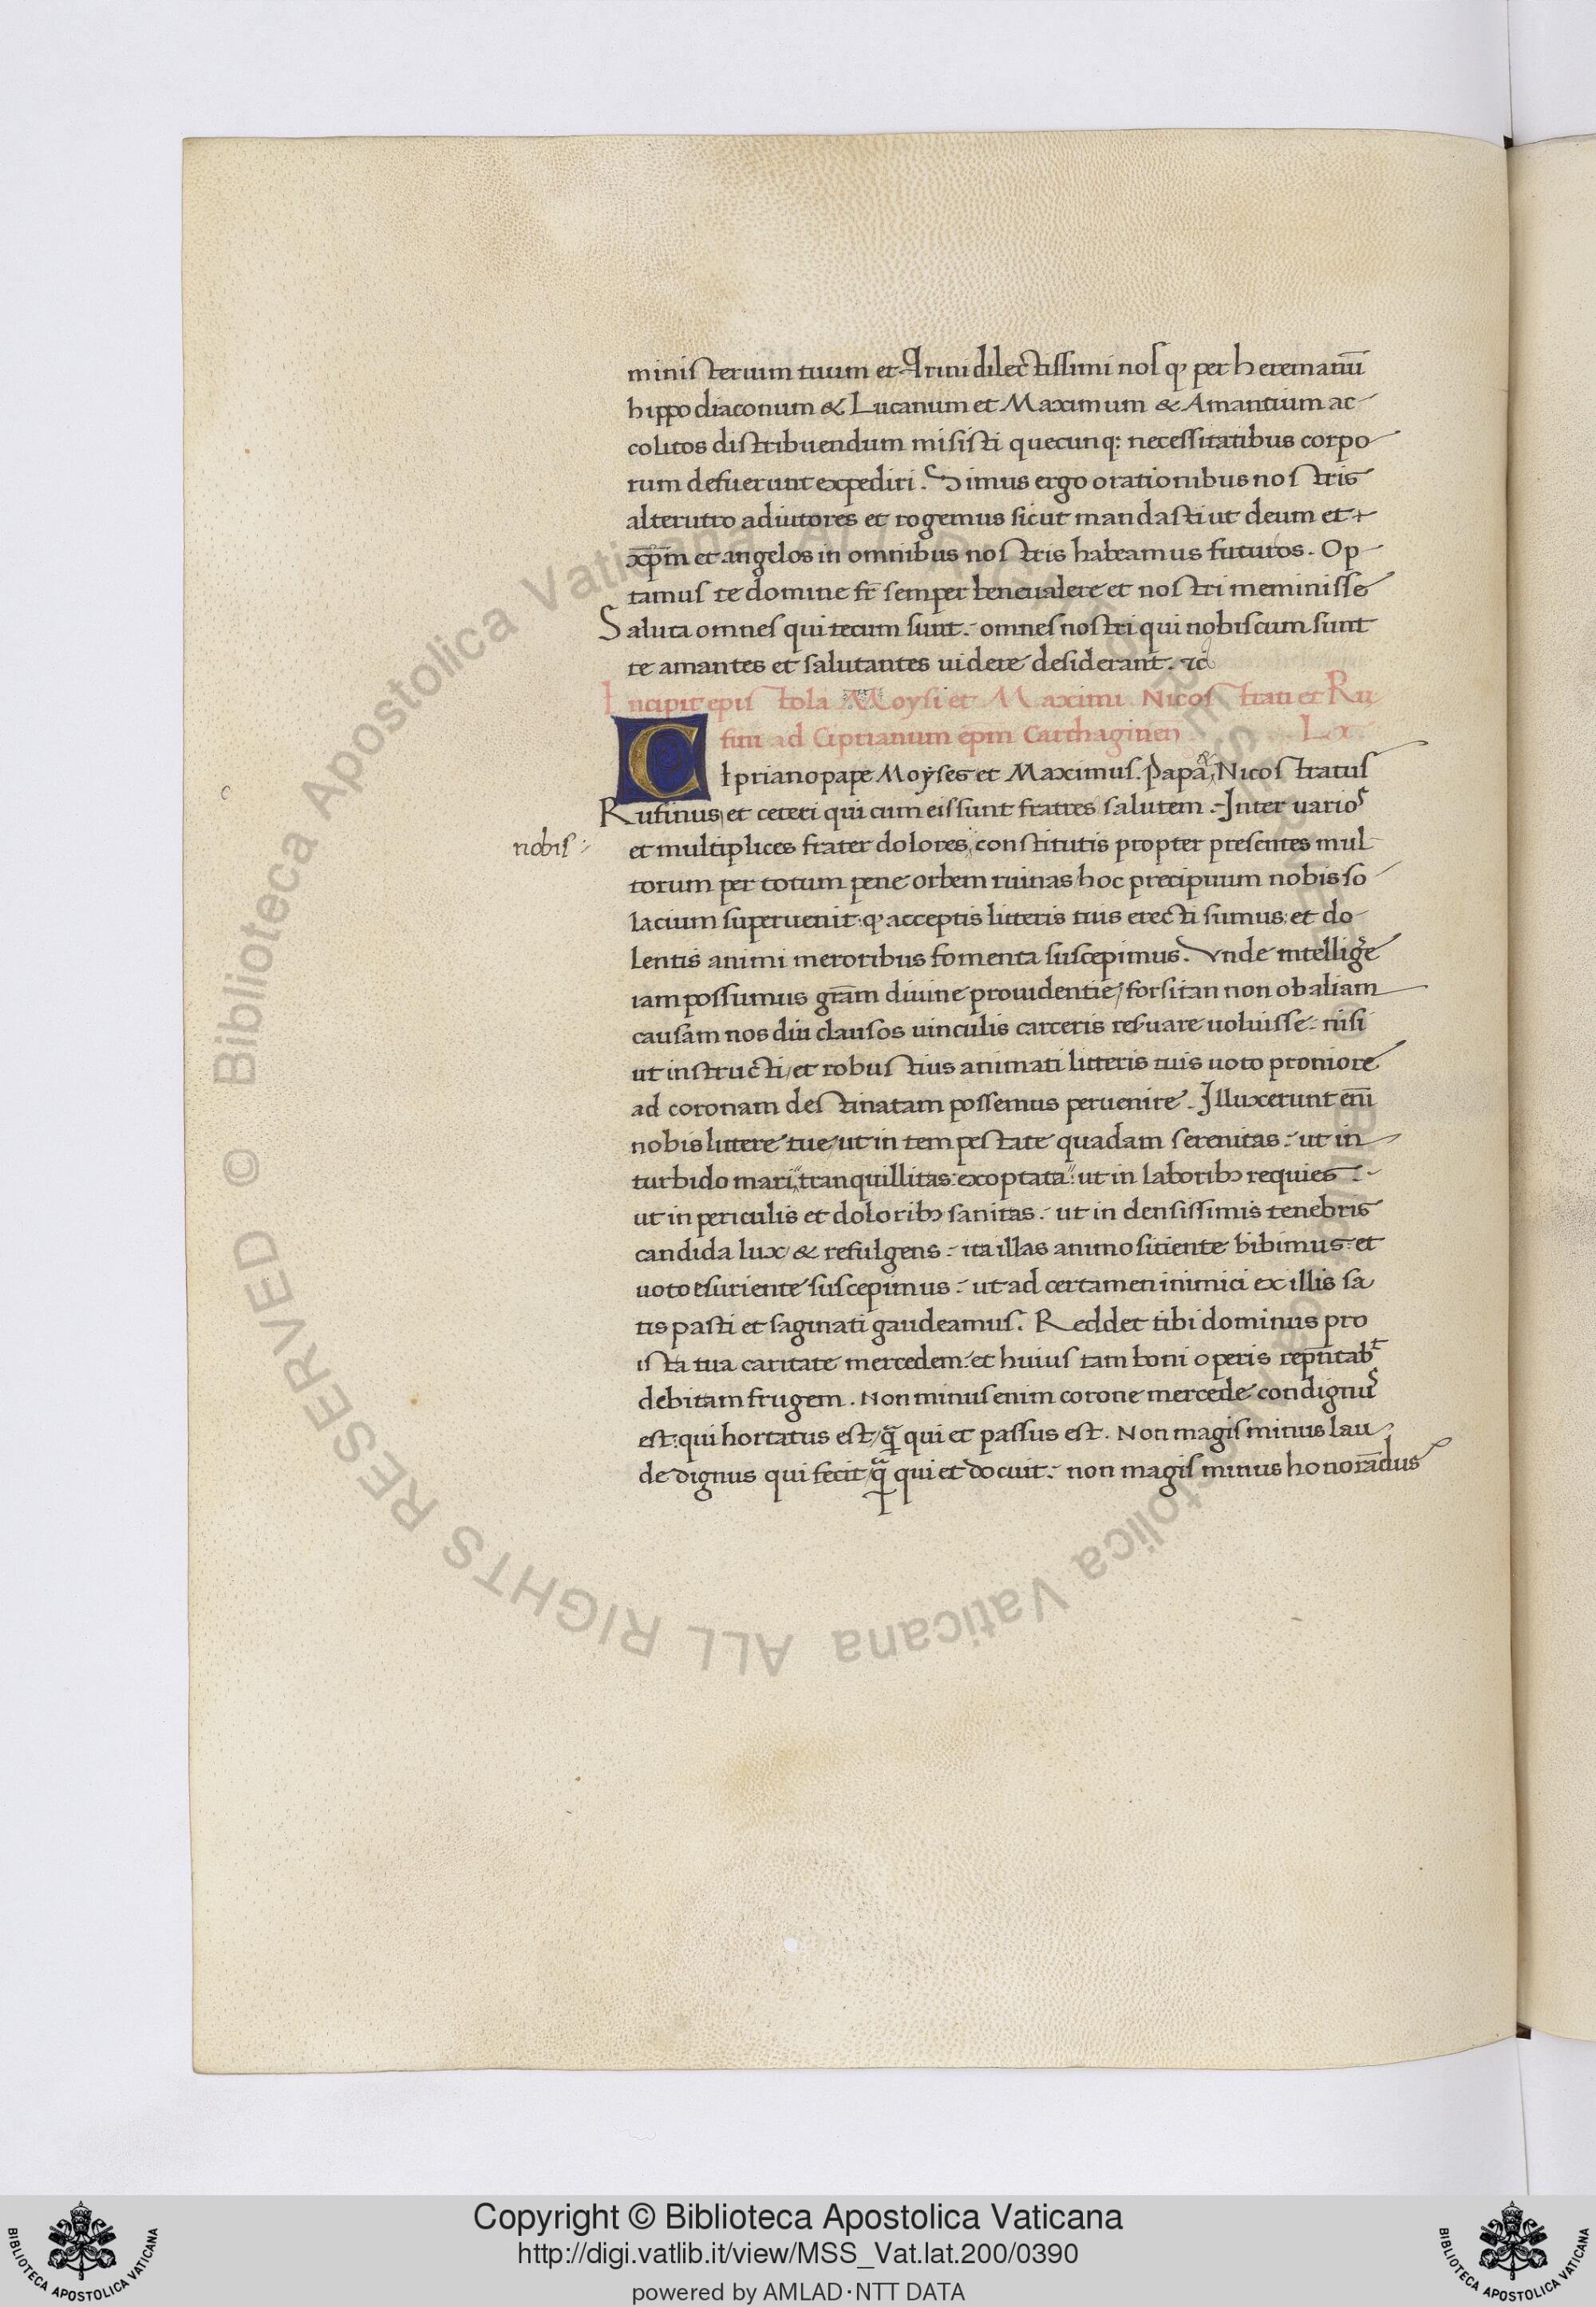 ministerium tuum et Arini dilectissimi nos qꝫ per heremanū
hippodiaconum & Lucanum et Maximum & Amantium ac-
colitos distribuendum misisti quecunqꝫ necessitatibus corpo-
rum defuerunt expediri. Simus ergo orationibus nostris
alterutro adiutores et rogemus sicut mandasti ut deum et
xp̄m et angelos in omnibus nostris habeamus futuros. Op-
tamus te domine fr̄ semper bene ualere et nostri meminisse
Saluta omnes qui tecum sunt. omnes nostri qui nobiscum sunt
te amantes et salutantes uidere desiderant.
Incipit epistola Moysi et Maximi Nicostrati et Ru
fini ad Ciprianum ep̄m Carthaginen̄ Lx.
Cipriano pape Moyses et Maximus. Papa Nicostratus
Rufinus et ceteri qui cum eis sunt fratres salutem. Inter varios
nobis :
et multiplices frater dolores constitutis propter presentes mul-
torum per totum pene orbem ruinas hoc precipuum nobis so-
lacium superuenit: qꝫ acceptis litteris tuis erecti sumus: et do-
lentis animi meroribus fomenta suscepimus. Vnde intellige
iam possumus gr̄am diuine prouidentie/ forsitan non ob aliam
causam nos diu clausos uinculis carceris res̄uare uoluisse: nisi
ut instructi/ et robustius animati litteris tuis uoto proniore
ad coronam destinatam possemus peruenire. Illuxerunt eni̅
nobis littere tue/ ut in tempestate quadam serenitas: ut in
turbido mari tranquillitas exoptata: ut in laboribꝫ requies:
ut in periculis et doloribꝫ sanitas. ut in densissimis tenebris
candida lux/ & refulgens: ita illas animo sitiente bibimus: et
uoto esuriente suscepimus: ut ad certamen inimici ex illis sa
tis pasti et saginati gaudeamus. Reddet tibi dominus pro
ista tua caritate mercedem: et huius tam boni operis rep̄ntabᵗ
debitam frugem. Non minus enim corone mercede condignus
est: qui hortatus est/ ꝗ̃ qui et passus est. Non magis minus lau-
de dignus qui fecit/ ꝗ̃ qui et docuit: non magis minus honorādus
Copyright © Biblioteca Apostolica Vaticana
http://digi.vatlib.it/view/MSS_Vat.lat.200/0390
powered by AMLAD·NTT DATA
BIBLIOTECA APOSTOLICA VATICANA
BIBLIOTECA APOSTOLICA VATICANA
© Biblioteca Apostolica Vaticana ALL RIGHTS RESERVED
© Biblioteca Apostolica Vaticana ALL RIGHTS RESERVED